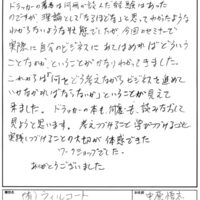 ドラッカーの書本は何冊か読んだ経験はあった
のですが、理論として「なるほどな」と思ってわかったような
わからないような状態でしたが今回のセミナーで
実際に自分のビジネスにあてはめれば「どういう
ことなのか」ということが少なりわかってきました。
これからは「何をどう考えながら、ビジネスを進めて
いかなければならないか」ということが見えて
来ました。ドラッカーの本を、何度も、読みなおして
見ようと思います。考えつづけること 学びつづけること
実践しつづけることの大切さが体感できた
ワークショップでした。
ありがとうございました
(有)ウィルコート